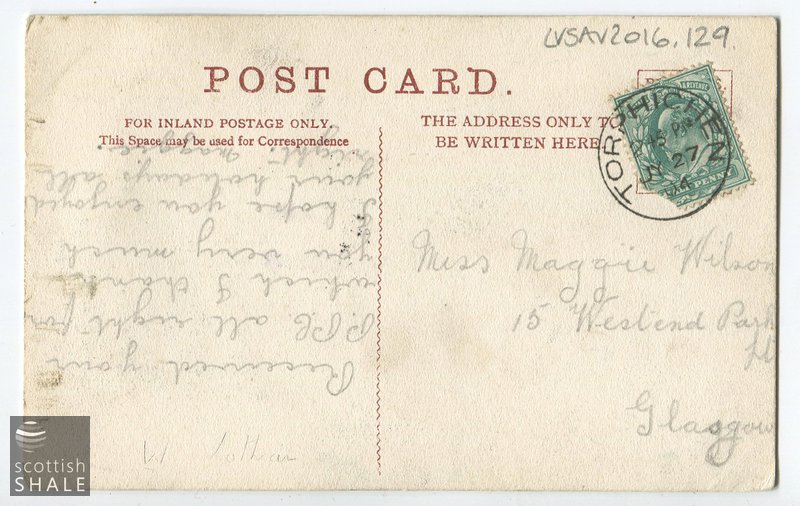 LVSAV2016.129.
POST CARD.
FOR INLAND POSTAGE ONLY.
This Space may be used for Correspondence
THE ADDRESS ONLY TO
BE WRITTEN HERE
TORPHICHEN
27
Miss Maggie Wilson
15 Westend Park
Glasgow
Received your
P.P.C. all right for
which I thank
you very much
I hope you enjoyed
your holidays all
right.
Maggie.
scottish
SHALE